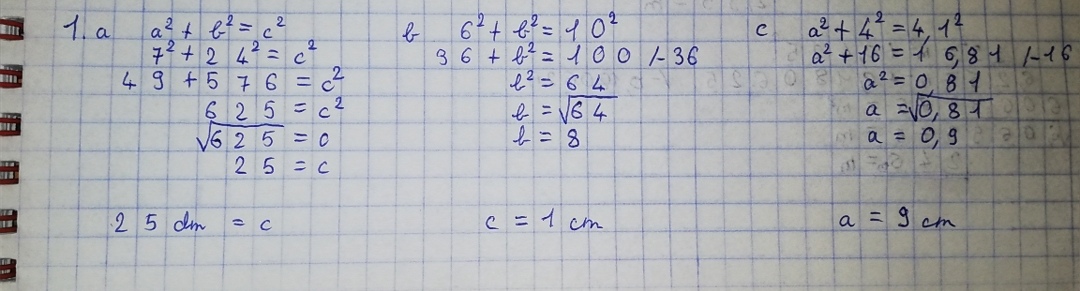 1. a a² + b² = c²
7² + 24² = c²
49 + 576 = c²
625 = c²
√625 = 0
25 = c
25 dm = c
b 6² + b² = 10²
36 + b² = 100 /-36
b² = 64
b = √64
b = 8
c = 1 cm
c a² + 4² = 4,1²
a² + 16 = 16,81 /-16
a² = 0,81
a = √0,81
a = 0,9
a = 9 cm